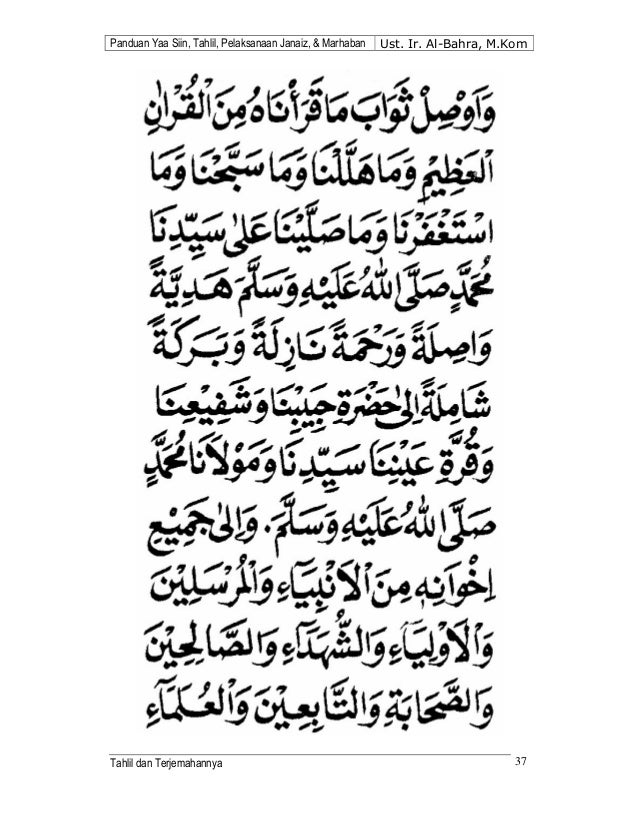 Panduan Yaa Siin, Tahlil, Pelaksanaan Janaiz, & Marhaban Ust. Ir. Al-Bahra, M.Kom
وَاَوْصِلْ ثَوَابَ مَا قَرَأْنَاهُ مِنَ الْقُرْاٰنِ
الْعَظِيْمِ وَمَا هَلَّلْنَا وَمَا سَبَّحْنَا وَمَا
اسْتَغْفَرْنَا وَمَا صَلَّيْنَا عَلٰى سَيِّدِنَا
مُحَمَّدٍ صَلَّى اللّٰهُ عَلَيْهِ وَسَلَّمَ هَدِيَّةً
وَاصِلَةً وَرَحْمَةً نَازِلَةً وَبَرَكَةً
شَامِلَةً اِلٰى حَضْرَةِ حَبِيْبِنَا وَشَفِيْعِنَا
وَقُرَّةِ عَيْنِنَا سَيِّدِنَا وَمَوْلَانَا مُحَمَّدٍ
صَلَّى اللّٰهُ عَلَيْهِ وَسَلَّمَ. وَاِلٰى جَمِيْعِ
اِخْوَانِهٖ مِنَ الْاَنْبِيَآءِ وَالْمُرْسَلِيْنَ
وَالْاَوْلِيَآءِ وَالشُّهَدَآءِ وَالصَّالِحِيْنَ
وَالصَّحَابَةِ وَالتَّابِعِيْنَ وَالْعُلَمَآءِ
Tahlil dan Terjemahannya 37